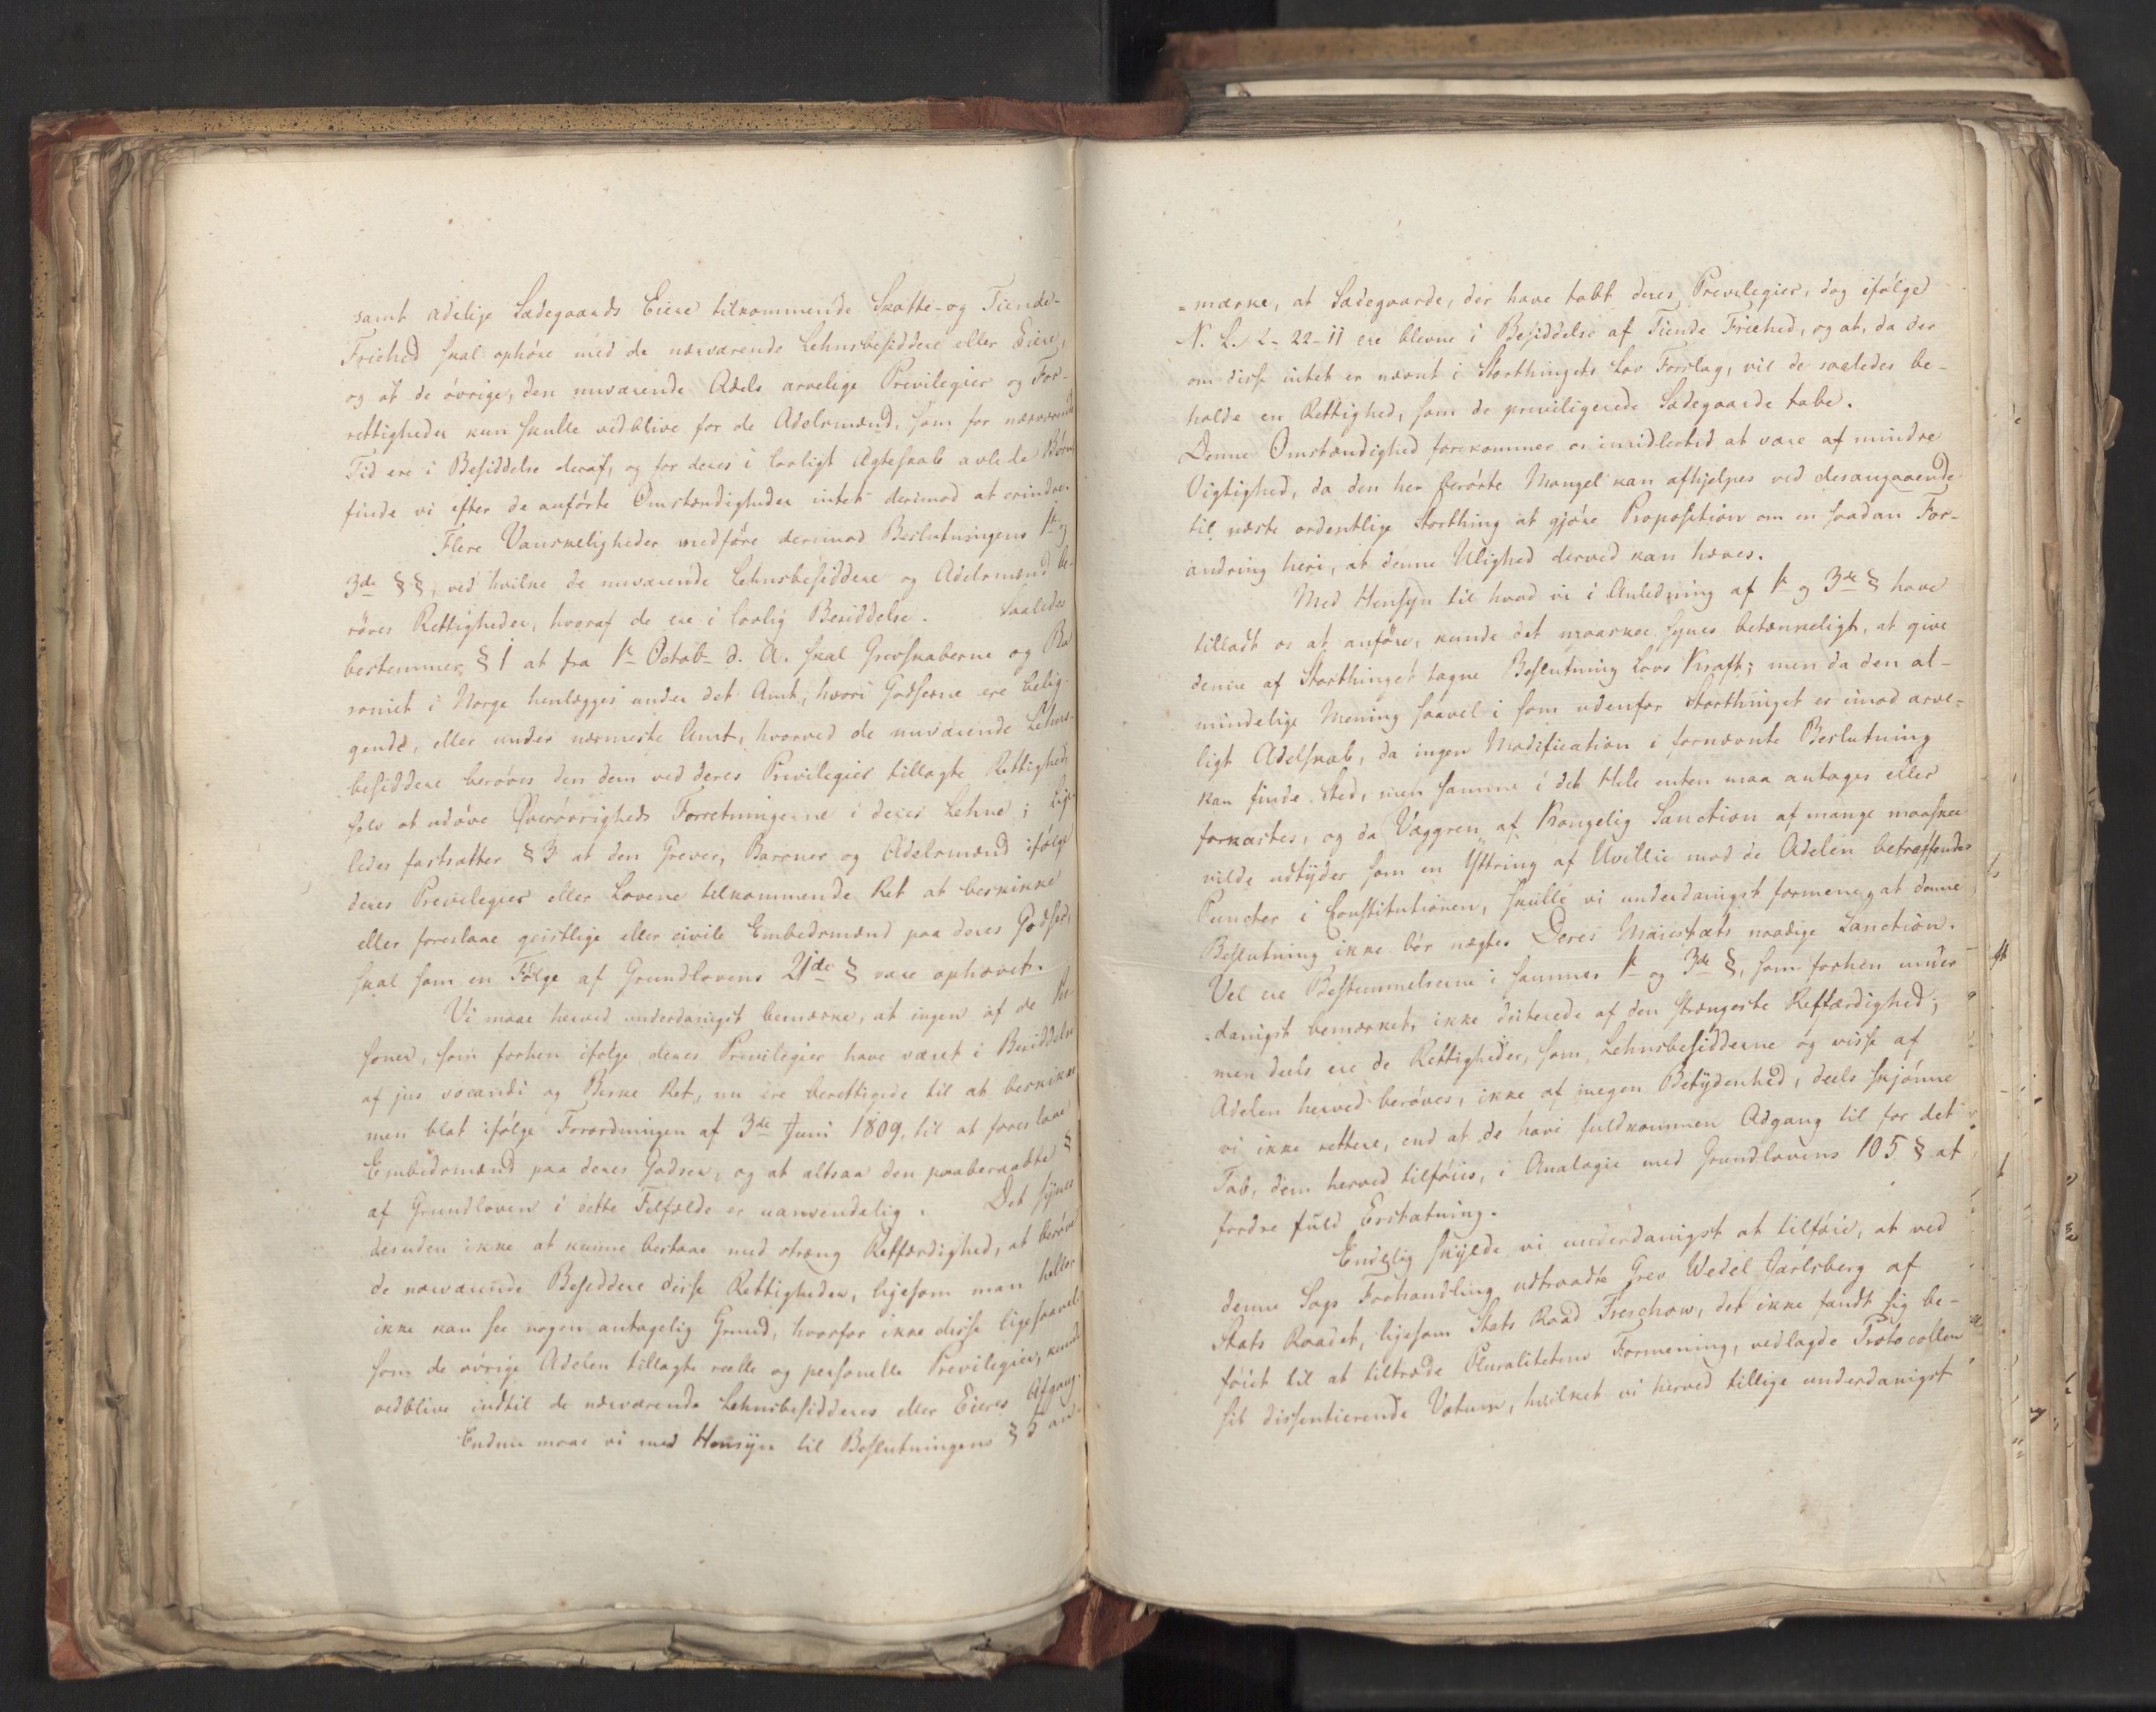 samt adelige Sædegaards Eiere tilkommende Skatte- og Tiende-
Friehed skal ophøre med de nærværende Lehnsbesiddere eller Eiere,
og at de øvrige, den nuværende Adels arvelige Privilegier og For-
rettigheder kun skulle vedblive for de Adelsmænd, som for nærværende
Tid ere i Besiddelse deraf, og for deres i lovligt Ægteskab avlede Børn
finde vi efter de anførte Omstændigheder intet derimod at erindre.
Flere Vanskeligheder medføre derimod Beslutningens 1te og
3de §§, ved hvilke de nuværende Lehnsbesiddere og Adelsmænd be-
røves Rettigheder, hvoraf de ere i lovlig Besiddelse. Saaledes
bestemmer § 1 at fra 1te Octob- d. A. skal Grevskaberne og Ba
roniet i Norge henlægges under det Amt, hvori Godserne ere belig-
gende, eller under nærmeste Amt, hvorved de nuværende Lehns-
besiddere berøves den dem ved deres Privilegier tillagte Rettighed,
selv at udøve Øverøvrigheds Forretningerne i deres Lehne; lige-
ledes fastsætter § 3 at den Grever, Baroner og Adelsmænd ifølge
deres Previlegier eller Lovene tilkommende Ret at beskikke
eller foreslaae geistlige eller civile Embedsmænd paa deres Godser,
skal som en Følge af Grundlovens 21de § være ophævet.
Vi maae herved underdanigst bemærke, at ingen af de Per-
soner, som forhen ifølge deres Previlegier have været i Besiddelse
af jus vocandi og Birke Ret, nu ere berettigede til at beskikke
men blot ifølge Forordningen af 3de Juni 1809, til at foreslaae
Embedsmænd paa deres Godser, og at altsaa den paaberaabte §
af Grundloven i dette Tilfælde er uanvendelig. Det synes
desuden ikke at kunne bestaae med stræng Retfærdighed, at berøve
de nærværende Besiddere disse Rettigheder, ligesom man heller
ikke kan see nogen antagelig Grund, hvorfor ikke disse ligesaavel
som de øvrige Adelen tillagte reelle og personelle Previlegier, kunde
vedblive indtil de nærværende Lehnsbesidderes eller Eieres Afgang.
Endnu maae vi med Hensyn til Beslutningens § 5 an-
=mærke, at Sædegaarde, der have tabt deres Previlegier, dog ifølge
N. L. 2-22-11 ere blevne i Besiddelse af Tiende Friehed, og at, da der
om disse intet er nævnt i Storthingets Lov Forslag, vil de saaledes be-
holde en Rettighed, som de priviligerede Sædegaarde tabe.
Denne Omstændighed forekommer os imidlertid at være af mindre
Vigtighed, da den her berørte Mangel kan afhjelpes ved desangaaende
til næste ordentlige Storthing at gjøre Proposition om en saadan For-
andring heri, at denne Ulighed derved kan hæves.
Med Hensyn til hvad vi i Anledning af 1te og 3de § have
tilladt os at anføre, kunde det maaskee synes betænkeligt, at give
denne af Storthinget tagne Beslutning Lovs Kraft; men da den al-
mindelige Mening saavel i som udenfor Storthinget er imod arve-
ligt Adelskab, da ingen Modification i fornævnte Beslutning
kan finde Sted, men samme i det Hele enten maa antages eller
forkastes, og da Vægren af Kongelig Sanction af mange maaskee
vilde udtydes som en Yttring af Uvillie mod de Adelen betræffende
Puncter i Constitutionen, skulle vi underdanigst formene, at denne
Beslutning ikke bør nægtes Deres Maiestæts naadige Sanction.
Vel ere Bestemmelserne i sammes 1te og 3de §, som forhen under
=danigst bemærket, ikke dicterede af den strængeste Retfærdighed;
men deels ere de Rettigheder, som Lehnsbesidderne og visse af
Adelen herved berøves, ikke af megen Betydenhed, deels skjønne
vi ikke rettere, end at de have fuldkommen Adgang til for det
Tab, dem herved tilføies, i Analogie med Grundlovens 105 § at
fordre fuld Erstatning.
Endelig skylde vi underdanigst at tilføie, at ved
denne Sags Forhandling udtraadte Grev Wedel Jarlsberg af
Stats Raadet, ligesom Stats Raad Treschow, det ikke fandt sig be-
føiet til at tiltræde Pluralitetens Formening, vedlagde Protocollen
sit dissentierende Votum, hvilket vi herved tillige underdanigst